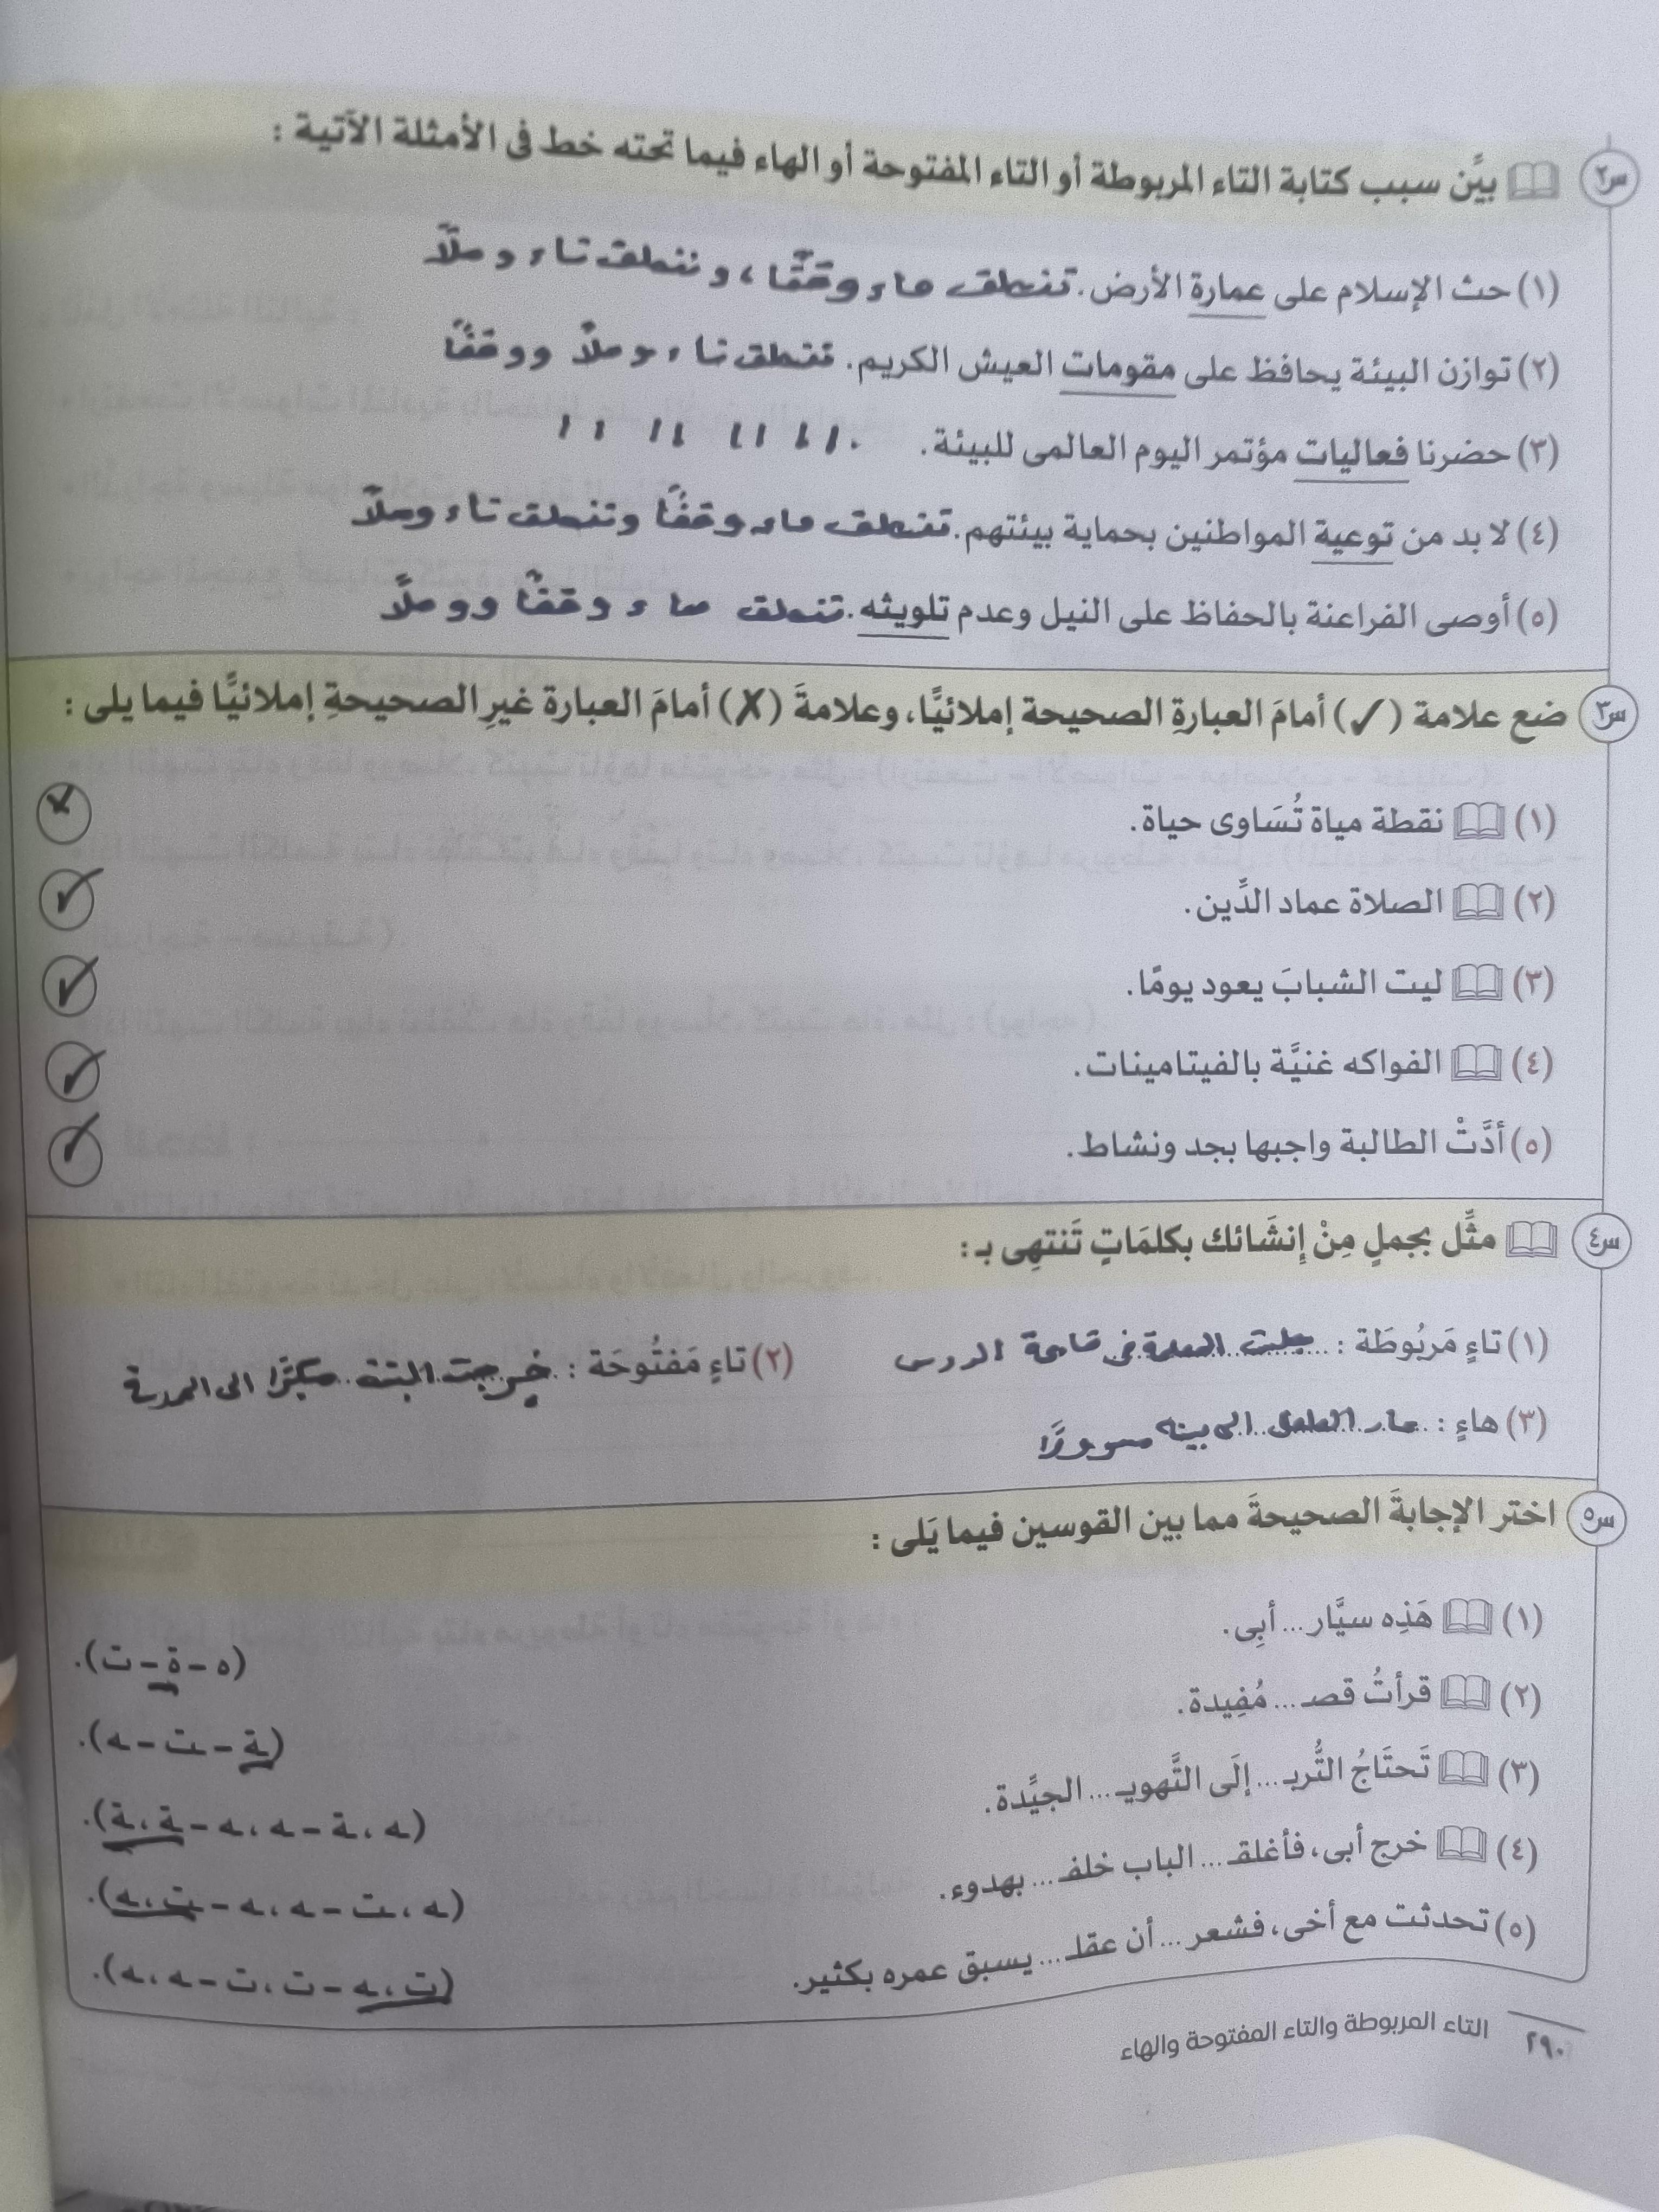 س٢ بيِّن سبب كتابة التاء المربوطة أو التاء المفتوحة أو الهاء فيما تحته خط فى الأمثلة الآتية :
(١) حث الإسلام على عمارة الأرض. تنطق هاء وقفًا ، و تنطق تاء وصلًا
(٢) توازن البيئة يحافظ على مقومات العيش الكريم. تنطق تاء وصلًا ووقفًا
(٣) حضرنا فعاليات مؤتمر اليوم العالمى للبيئة. // // // // //
(٤) لا بد من توعية المواطنين بحماية بيئتهم. تنطق هاء وقفًا وتنطق تاء وصلًا
(٥) أوصى الفراعنة بالحفاظ على النيل وعدم تلويثه. تنطق هاء وقفًا ووصلًا
س٣ ضع علامة (✓) أمامَ العبارةِ الصحيحة إملائيًّا، وعلامةَ (✗) أمامَ العبارة غيرِ الصحيحةِ إملائيًّا فيما يلى :
(١) نقطة مياة تُسَاوى حياة. ✗
(٢) الصلاة عماد الدِّين. ✓
(٣) ليت الشبابَ يعود يومًا. ✓
(٤) الفواكه غنيَّة بالفيتامينات. ✓
(٥) أدَّتْ الطالبة واجبها بجد ونشاط. ✓
س٤ مثِّل بجملٍ مِنْ إِنشَائك بكلمَاتٍ تَنتهِى بـ :
(١) تاءٍ مَربُوطَة : جلست المعلمة فى قاعة الدرس (٢) تاءٍ مَفتُوحَة : خرجت البنت مبكرًا الى المدرسة
(٣) هاءٍ : الطفل الى بيته مسرورًا
س٥ اختر الإجابةَ الصحيحةَ مما بين القوسين فيما يَلى :
(١) هَذِه سيَّار... أبِى. (ه – ة – ت).
(٢) قرأتُ قصـ... مُفِيدة. (ـة – ـت – ـه).
(٣) تَحتَاجُ التُّربـ... إلَى التَّهويـ... الجيِّدة. (ـه ، ـة – ـه ، ـه – ـة ، ـة).
(٤) خرج أبى، فأغلقـ... الباب خلفـ... بهدوء. (ـه ، ـت – ـه ، ـه – ـت ، ـه).
(٥) تحدثت مع أخى، فشعر... أن عقلـ... يسبق عمره بكثير. (ت ، ـه – ت ، ت – ـه ، ـه).
٢٩٠ التاء المربوطة والتاء المفتوحة والهاء